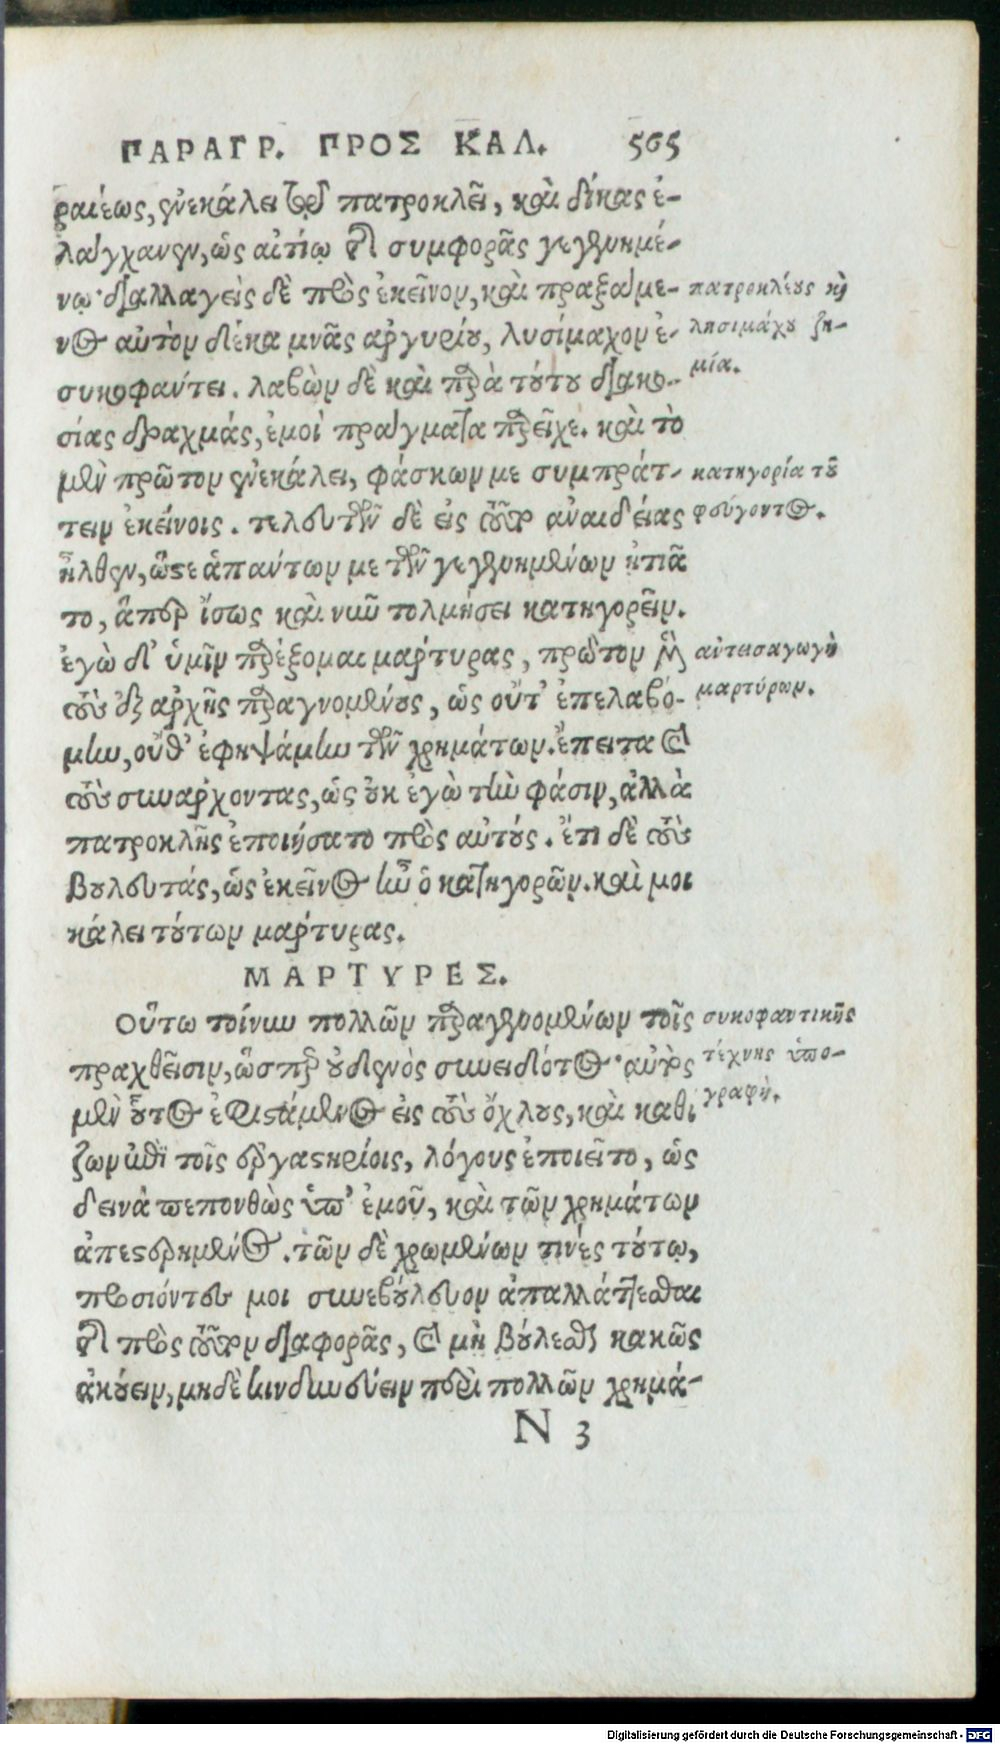 ΠΑΡΑΓΡ. ΠΡΟΣ ΚΑΛ. 565
ραιέως, ἐνεκάλει τῷ πατροκλεῖ, καὶ δίκας ἐ-
λάγχανεν, ὡς αἰτίῳ τῆς συμφορᾶς γεγενημέ-
νῳ· διαλλαγεὶς δὲ πρὸς ἐκεῖνον, καὶ πραξάμε-
νος αὐτὸν δέκα μνᾶς ἀργυρίου, λυσίμαχον ἐ-
συκοφάντει. λαβὼν δὲ καὶ παρὰ τούτου διακο-
σίας δραχμάς, ἐμοὶ πράγματα παρεῖχε. καὶ τὸ
μὲν πρῶτον ἐνεκάλει, φάσκων με συμπράτ-
τειν ἐκείνοις. τελευτῶν δὲ εἰς τοῦτο ἀναιδείας
ἦλθεν, ὥστε ἁπάντων με τῶν γεγενημένων ᾐτιᾶ
το, ἅπερ ἴσως καὶ νῦν τολμήσει κατηγορεῖν.
ἐγὼ δ' ὑμῖν παρέξομαι μάρτυρας, πρῶτον μὲν
τοὺς ἐξ ἀρχῆς παραγνομένους, ὡς οὔτ' ἐπελαβό-
μην, οὔθ' ἐφηψάμην τῶν χρημάτων. ἔπειτα καὶ
τοὺς συνάρχοντας, ὡς οὐκ ἐγὼ τὴν φάσιν, ἀλλὰ
πατροκλῆς ἐποιήσατο πρὸς αὐτούς. ἔτι δὲ τοὺς
βουλευτάς, ὡς ἐκεῖνος ἦν ὁ κατηγορῶν. καὶ μοι
κάλει τούτων μάρτυρας.
ΜΑΡΤΥΡΕΣ.
Οὕτω τοίνυν πολλῶν παραγενομένων τοῖς
πραχθεῖσιν, ὥσπερ οὐδενὸς συνειδότος· αὐτὸς
μὲν οὗτος ἐφιστάμενος εἰς τοὺς ὄχλους, καὶ καθί
ζων ἐπὶ τοῖς ἐργαστηρίοις, λόγους ἐποιεῖτο, ὡς
δεινὰ πεπονθὼς ὑπ' ἐμοῦ, καὶ τῶν χρημάτων
ἀπεστερημένος. τῶν δὲ χρωμένων τινές τούτῳ,
προσιόντες μοι συνεβούλευον ἀπαλλάττεσθαι
τῆς πρὸς τοῦτον διαφορᾶς, καὶ μὴ βούλεσθαι κακῶς
ἀκούειν, μηδὲ κινδυνεύειν περὶ πολλῶν χρημά-
N 3
πατροκλέους καὶ
λησιμάχου ζη-
μία.
κατηγορία τοῦ
φεύγοντος.
ἀντεισαγωγὴ
μαρτύρων.
συκοφαντικῆς
τέχνης ὑπο-
γραφή.
Digitalisierung gefördert durch die Deutsche Forschungsgemeinschaft - DFG